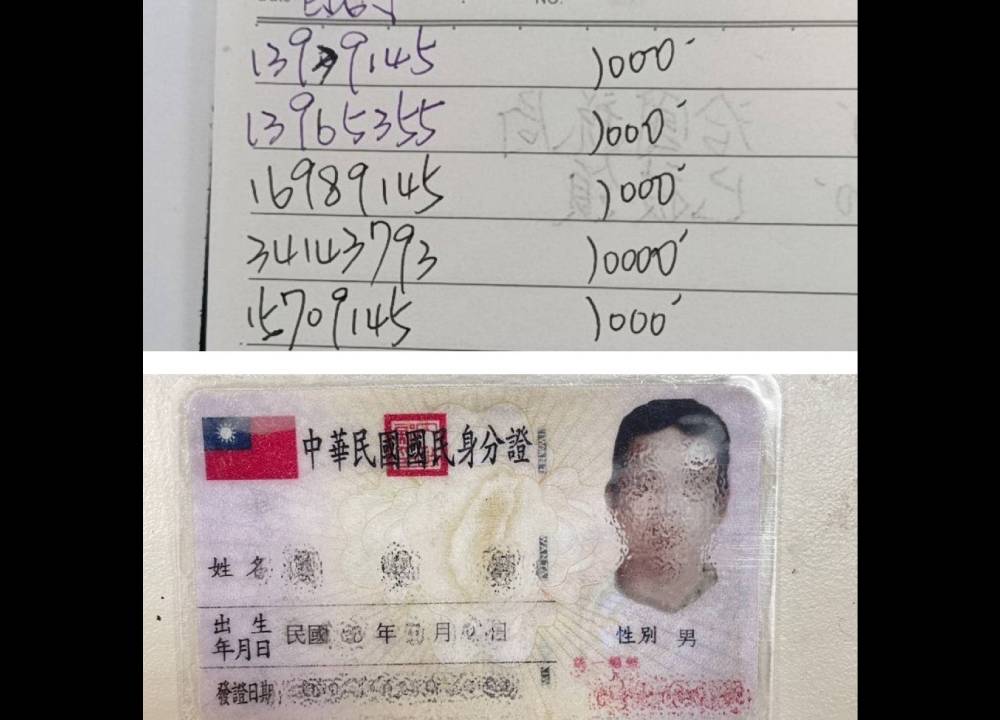 NO.
1000'
13965355 1000'
16989145 1000'
34143793 10000'
15709145 1000'
中華民國國民身分證
姓名
出生年月日 民國 年 月 日
性別 男
發證日期